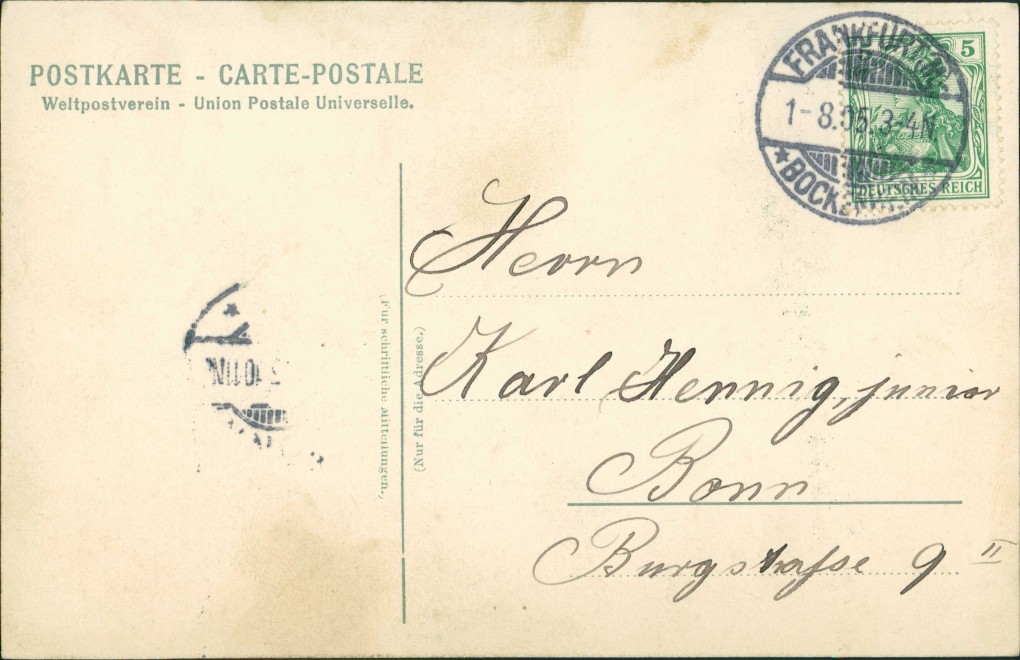 POSTKARTE - CARTE-POSTALE
Weltpostverein - Union Postale Universelle.
5
DEUTSCHES REICH
1-8.05.3-4N.
(Für schriftliche Mitteilungen.)
(Nur für die Adresse.)
Herrn
Karl Hennig, junior
Bonn
Burgstraſse 9 II